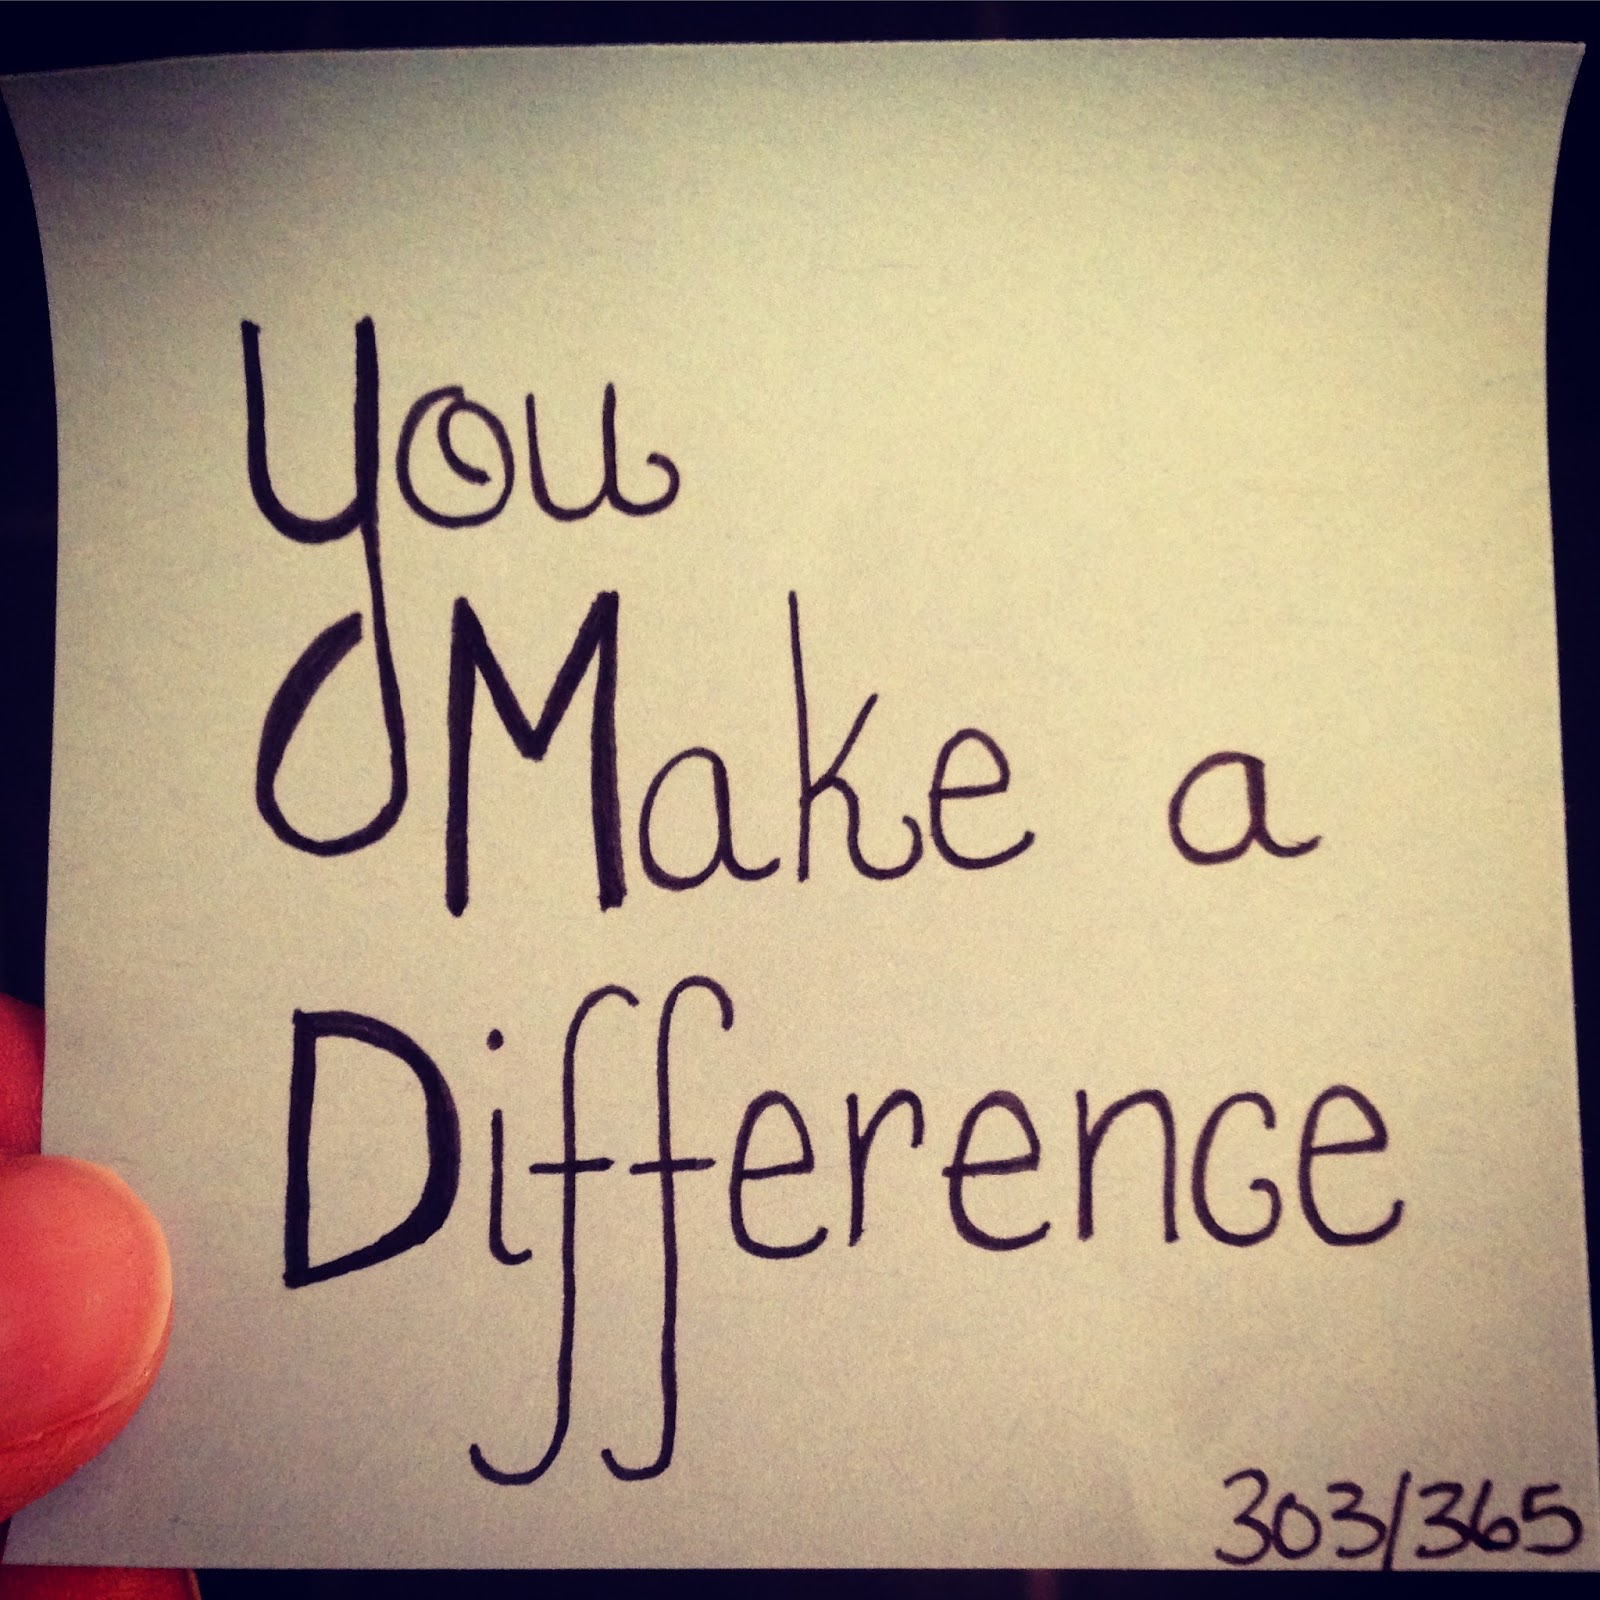 You
Make a
Difference
303/365